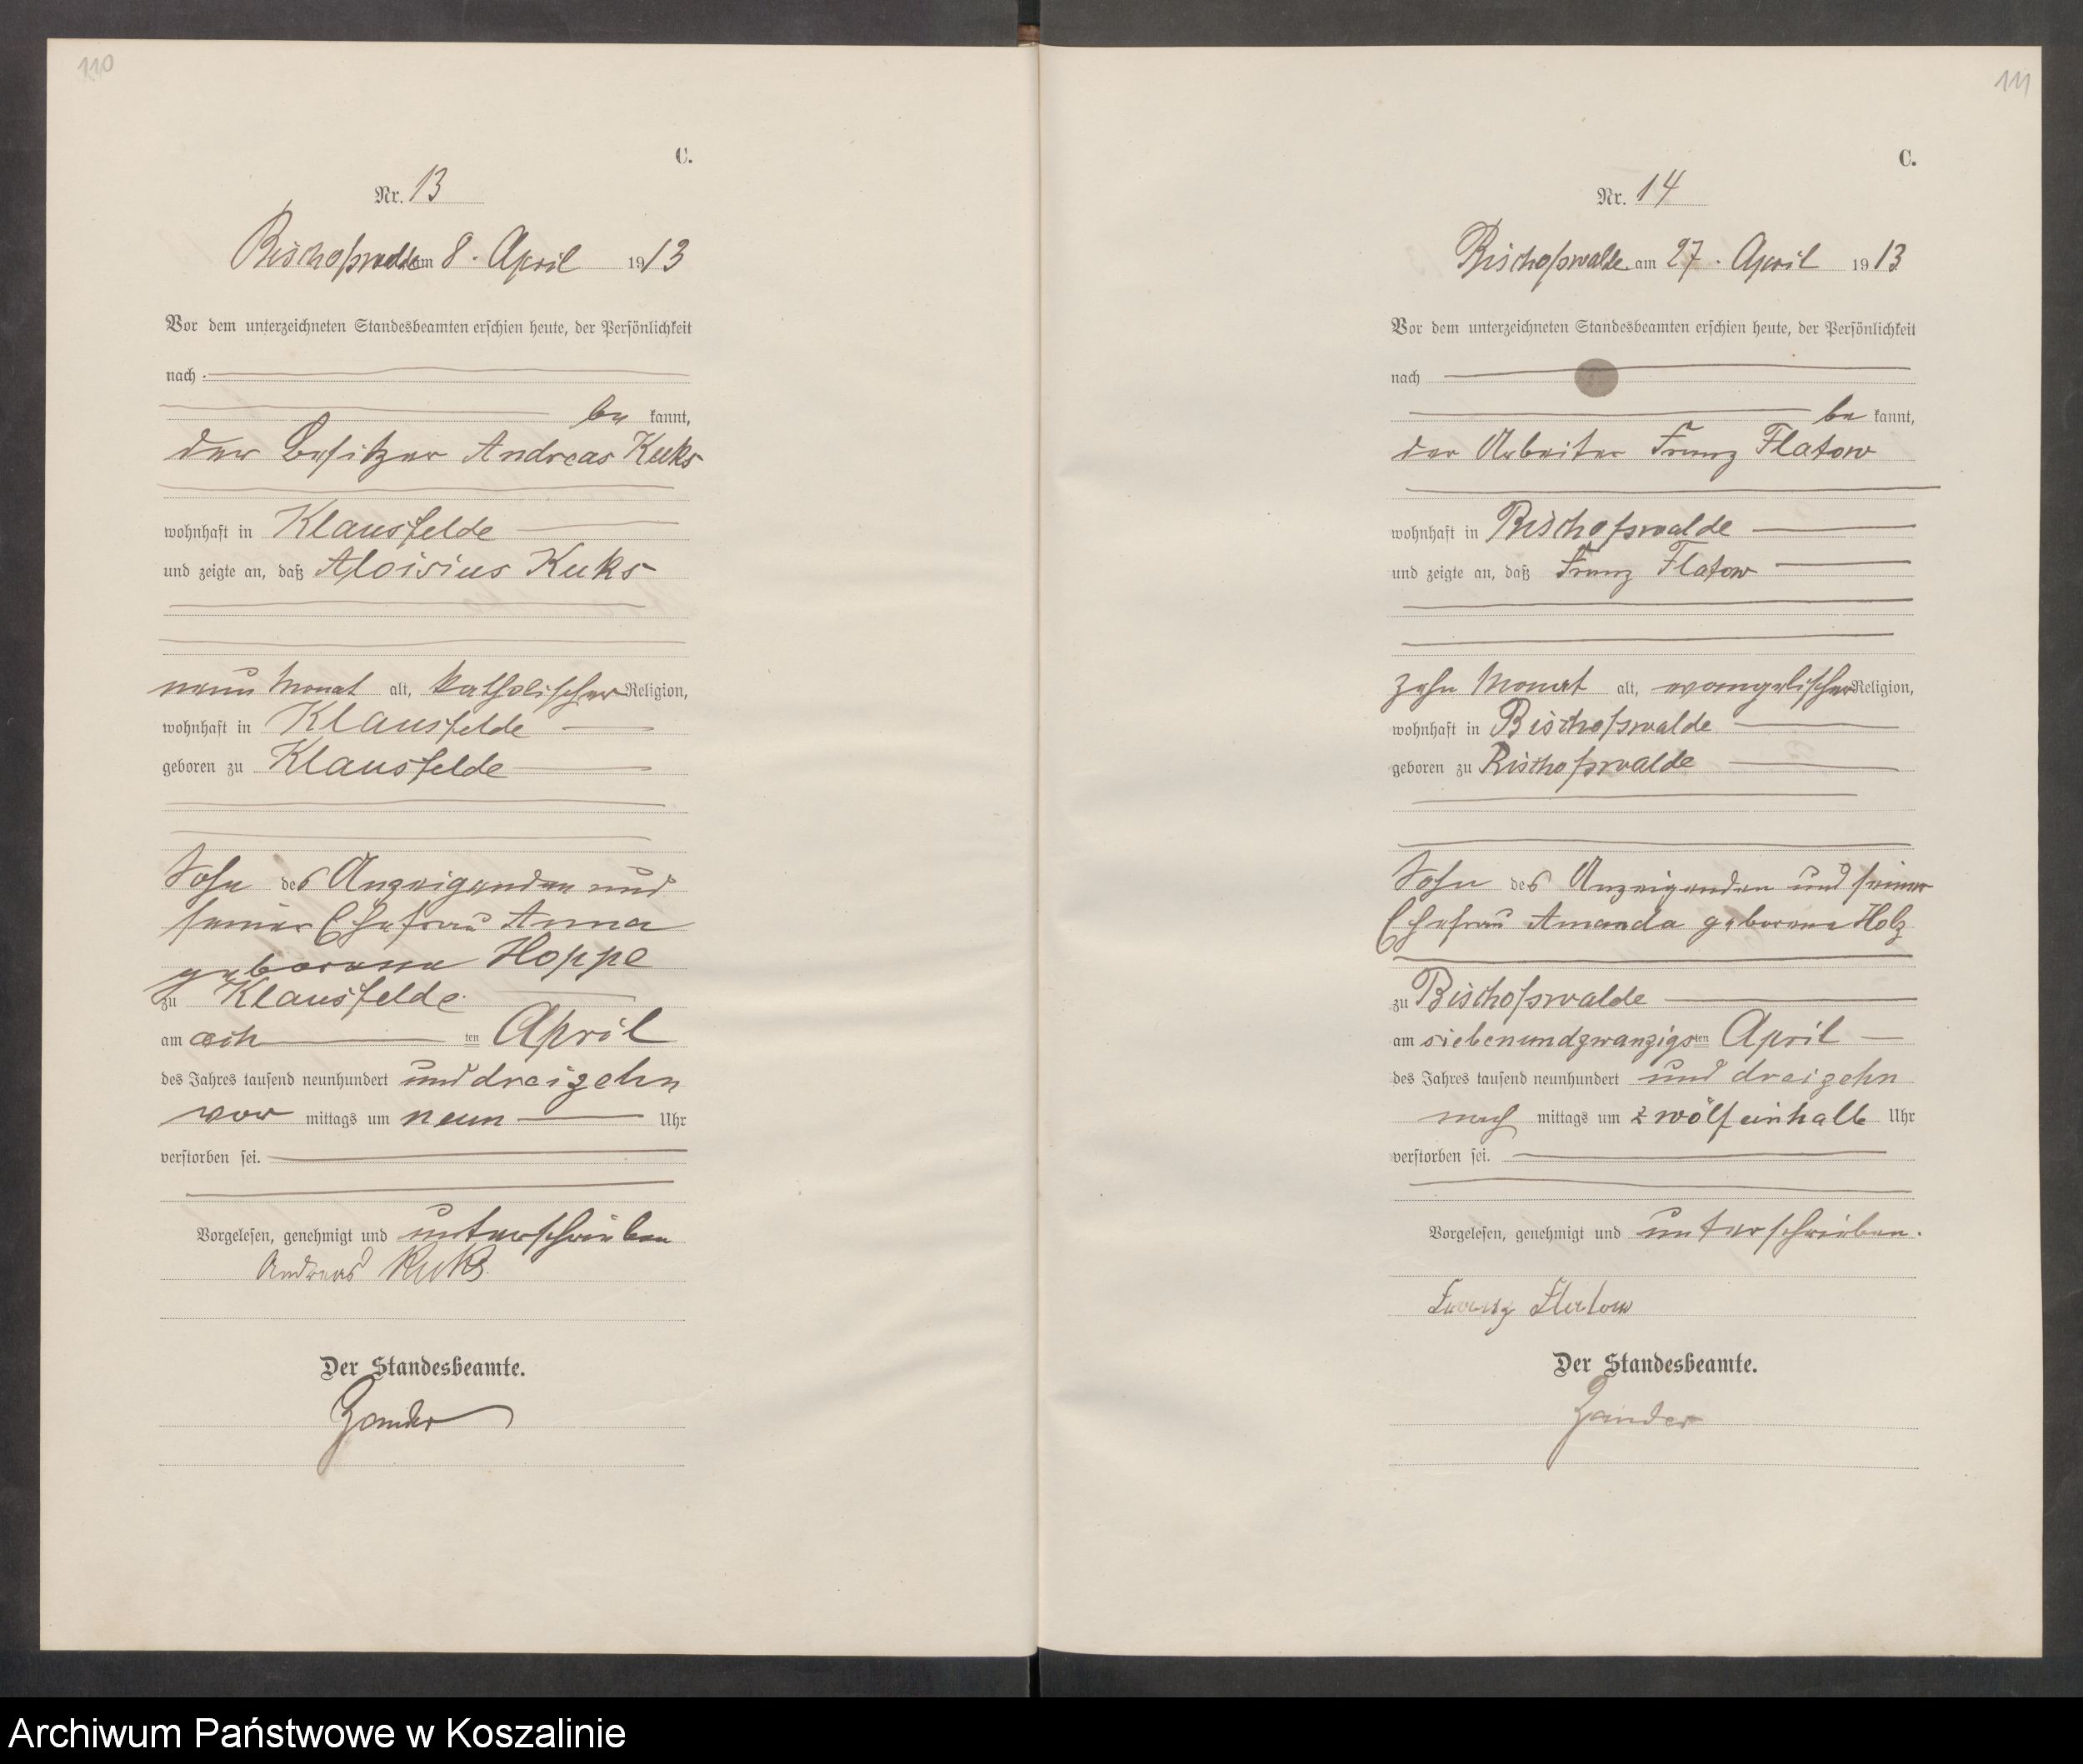 110
C.
Nr. 13
Bischofswalde am 8. April 1913
Vor dem unterzeichneten Standesbeamten erschien heute, der Persönlichkeit
nach
be kannt,
der Besitzer Andreas Kuks
wohnhaft in Klausfelde
und zeigte an, daß Aloisius Kuks
neun Monat alt, katholischer Religion,
wohnhaft in Klausfelde
geboren zu Klausfelde
Sohn des Anzeigenden und
seiner Ehefrau Anna
geborene Hoppe
zu Klausfelde
am ach ten April
des Jahres tausend neunhundert und dreizehn
vor mittags um neun Uhr
verstorben sei.
Vorgelesen, genehmigt und unterschrieben
Andreas Kuks
Der Standesbeamte.
Zander
111
C.
Nr. 14
Bischofswalde am 27. April 1913
Vor dem unterzeichneten Standesbeamten erschien heute, der Persönlichkeit
nach
be kannt,
der Arbeiter Franz Flatow
wohnhaft in Bischofswalde
und zeigte an, daß Franz Flatow
zehn Monat alt, evangelischer Religion,
wohnhaft in Bischofswalde
geboren zu Bischofswalde
Sohn des Anzeigenden und seiner
Ehefrau Amanda geborene Holz
zu Bischofswalde
am siebenundzwanzigs ten April
des Jahres tausend neunhundert und dreizehn
nach mittags um zwölfeinhalb Uhr
verstorben sei.
Vorgelesen, genehmigt und unterschrieben.
Franz Flatow
Der Standesbeamte.
Zander
Archiwum Państwowe w Koszalinie